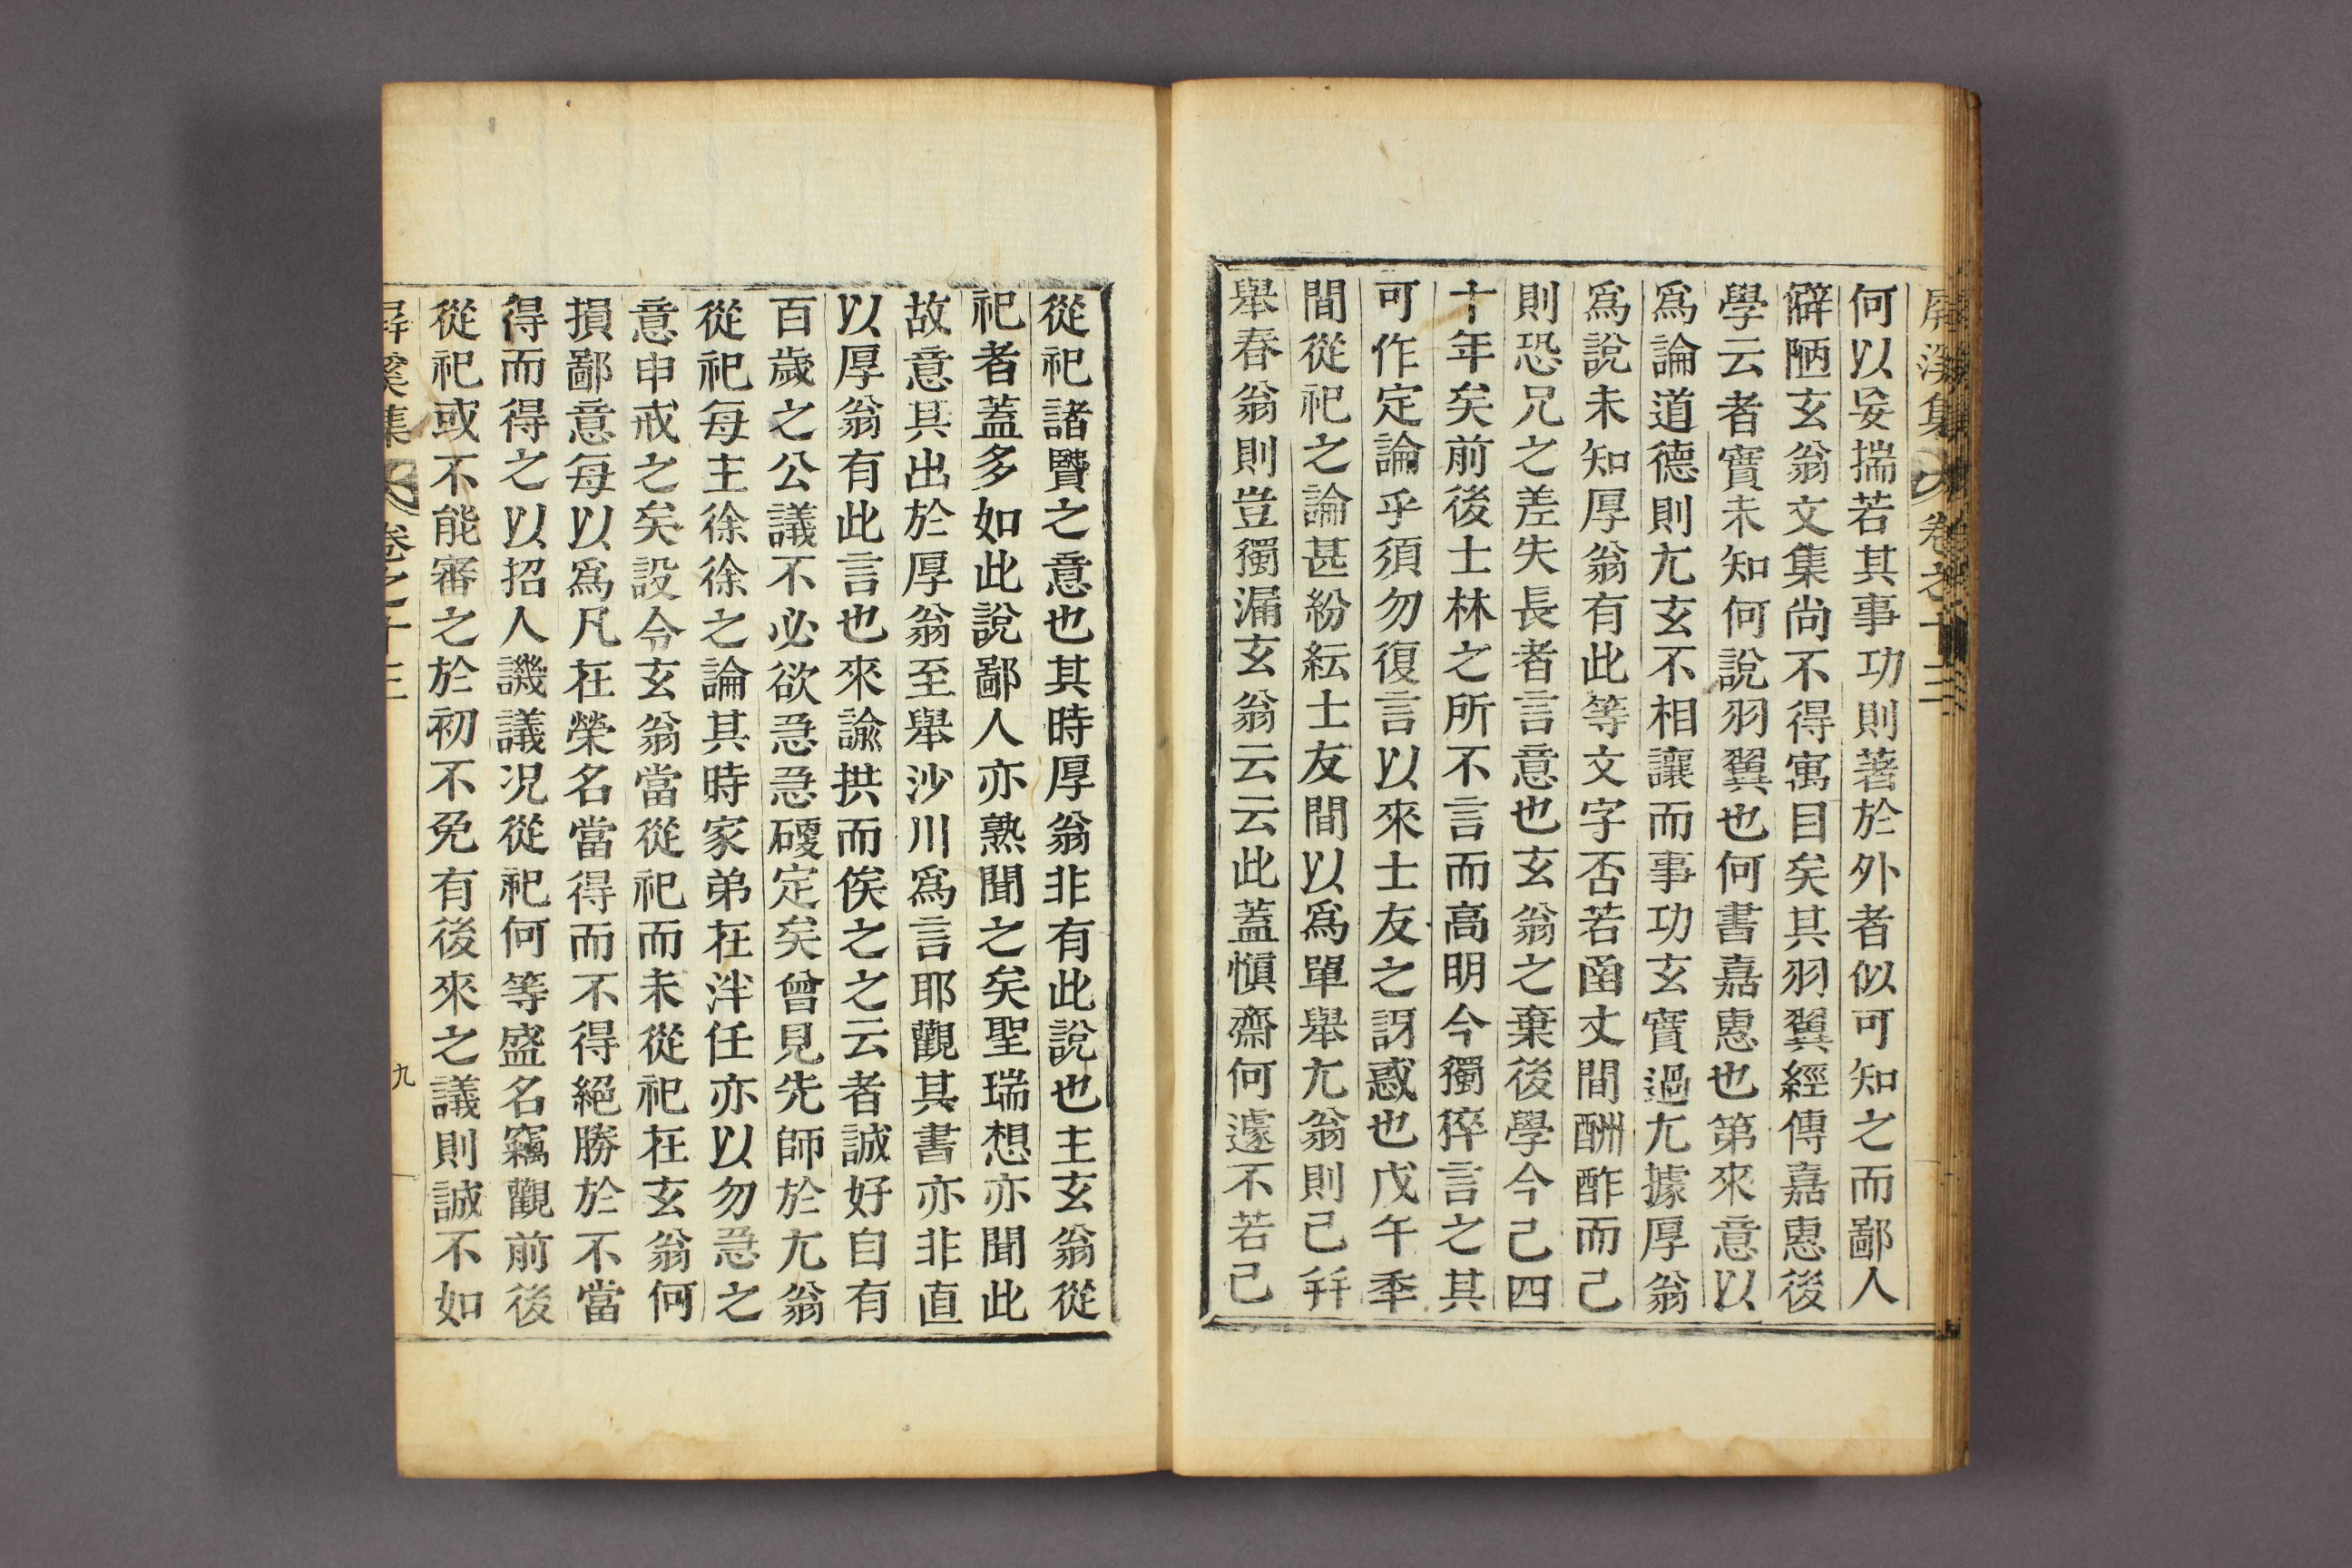 屛溪集 卷之十三
何以妄揣若其事功則著於外者似可知之而鄙人
僻陋玄翁文集尚不得寓目矣其羽翼經傳嘉惠後
學云者實未知何說羽翼也何書嘉惠也第來意以
爲論道德則尤玄不相讓而事功玄實過尤據厚翁
爲說未知厚翁有此等文字否若凾丈間酬酢而已
則恐兄之差失長者言意也玄翁之棄後學今已四
十年矣前後士林之所不言而高明今獨猝言之其
可作定論乎須勿復言以來士友之訝惑也戊午季
間從祀之論甚紛紜士友間以爲單舉尤翁則已幷
舉春翁則豈獨漏玄翁云云此蓋愼齋何遽不若已
從祀諸賢之意也其時厚翁非有此說也主玄翁從
祀者蓋多如此說鄙人亦熟聞之矣聖瑞想亦聞此
故意其出於厚翁至舉沙川爲言耶觀其書亦非直
以厚翁有此言也來諭拱而俟之之云者誠好自有
百歲之公議不必欲急急硬定矣曾見先師於尤翁
從祀每主徐徐之論其時家弟在泮任亦以勿急之
意申戒之矣設令玄翁當從祀而未從祀在玄翁何
損鄙意每以爲凡在榮名當得而不得絕勝於不當
得而得之以招人譏議况從祀何等盛名竊觀前後
從祀或不能審之於初不免有後來之議則誠不如
屛溪集 卷之十三 九